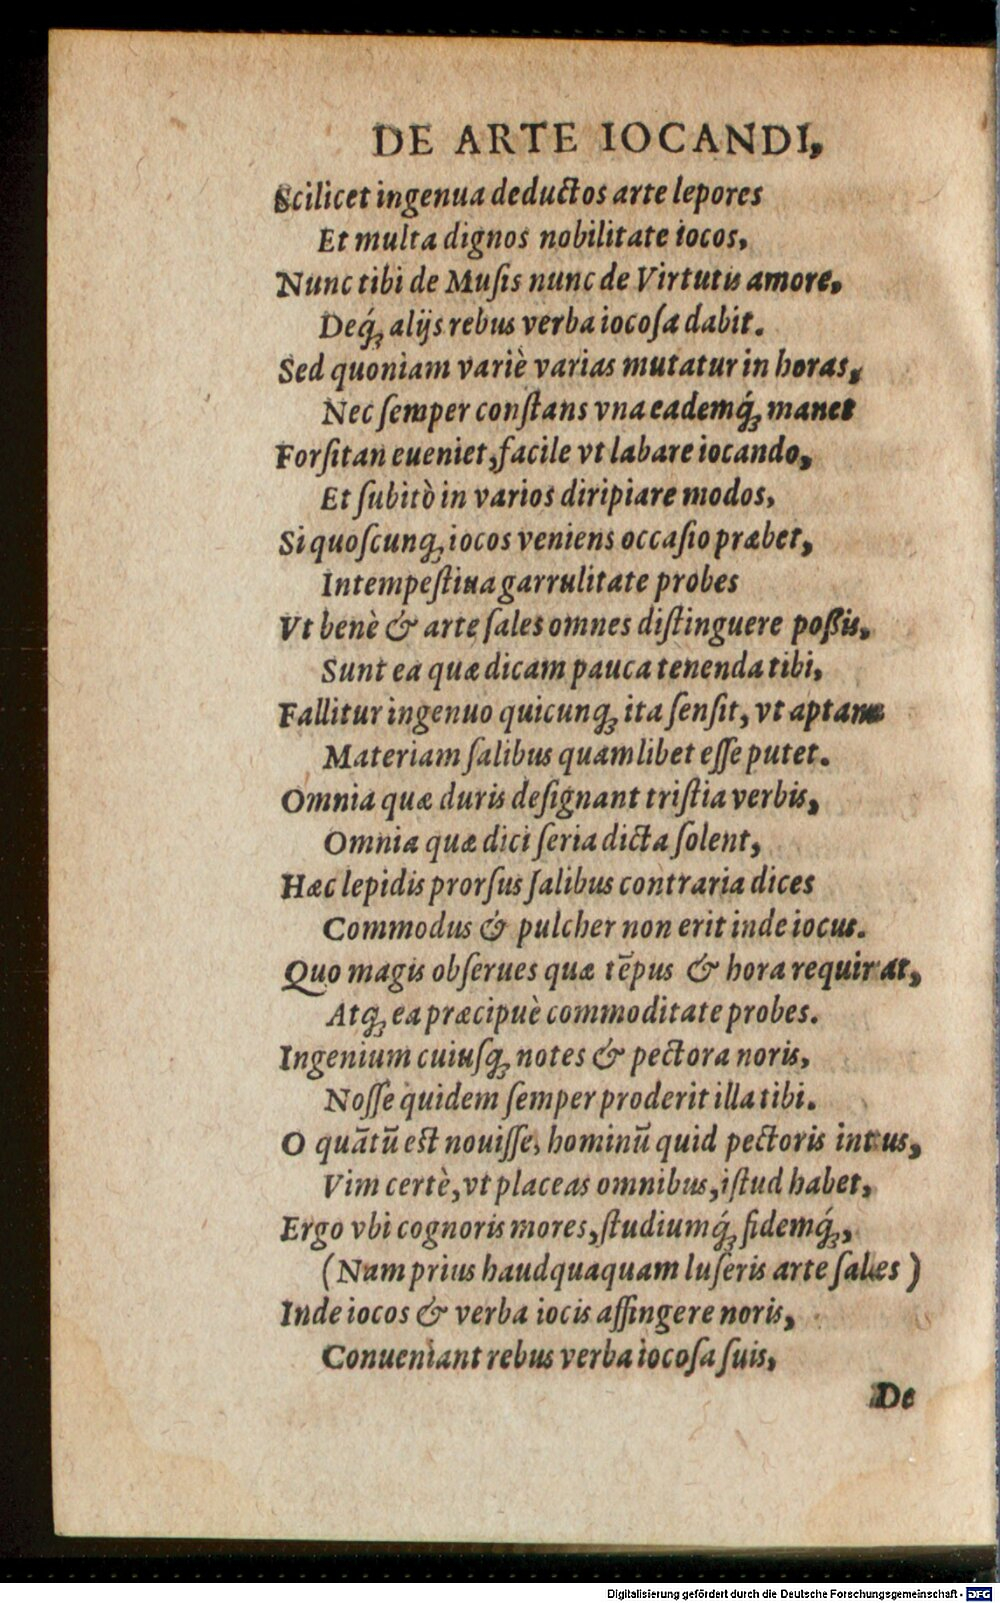 DE ARTE IOCANDI,
Scilicet ingenua deductos arte lepores
Et multa dignos nobilitate iocos,
Nunc tibi de Muſis nunc de Virtutis amore,
Deq́; alijs rebus verba iocoſa dabit.
Sed quoniam variè varias mutatur in horas,
Nec ſemper conſtans vna eademq́; manet
Forſitan eueniet, facile vt labare iocando,
Et ſubitò in varios diripiare modos,
Si quoſcunq; iocos veniens occaſio præbet,
Intempeſtiua garrulitate probes
Vt benè & arte ſales omnes diſtinguere poßis,
Sunt ea quæ dicam pauca tenenda tibi,
Fallitur ingenuo quicunq; ita ſenſit, vt aptam
Materiam ſalibus quamlibet eſſe putet.
Omnia quæ duris deſignant triſtia verbis,
Omnia quæ dici ſeria dicta ſolent,
Hæc lepidis prorſus ſalibus contraria dices
Commodus & pulcher non erit inde iocus.
Quo magis obſerues quæ tẽpus & hora requirat,
Atq; ea præcipuè commoditate probes.
Ingenium cuiuſq; notes & pectora noris,
Noſſe quidem ſemper proderit illa tibi.
O quãtũ est nouiſſe, hominũ quid pectoris intus,
Vim certè, vt placeas omnibus, iſtud habet,
Ergo vbi cognoris mores, ſtudiumq́; fidemq́;,
(Nam prius haudquaquam luſeris arte ſales)
Inde iocos & verba iocis affingere noris,
Conueniant rebus verba iocoſa ſuis,
De
Digitalisierung gefördert durch die Deutsche Forschungsgemeinschaft - DFG